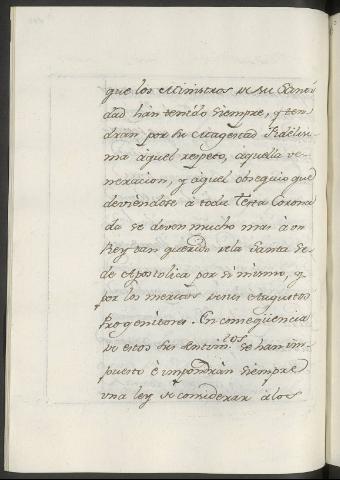 que los Ministros de su Santi
dad han tenido siempre, y ten
dràn por Su Magestad Fidelisi
ma aquel respeto, aquella ve
neracion, y aquel obsequio que
deviendose à toda Testa Corona
da se deven mucho mas à un
Rey tan querido dela Santa Se
de Apostolica por si mismo, y
por los meritos de sus Augustos
Progenitores. En conseqüencia
de estos sus sentim.tos se han im
puesto è impondràn siempre
una ley de considerar à los